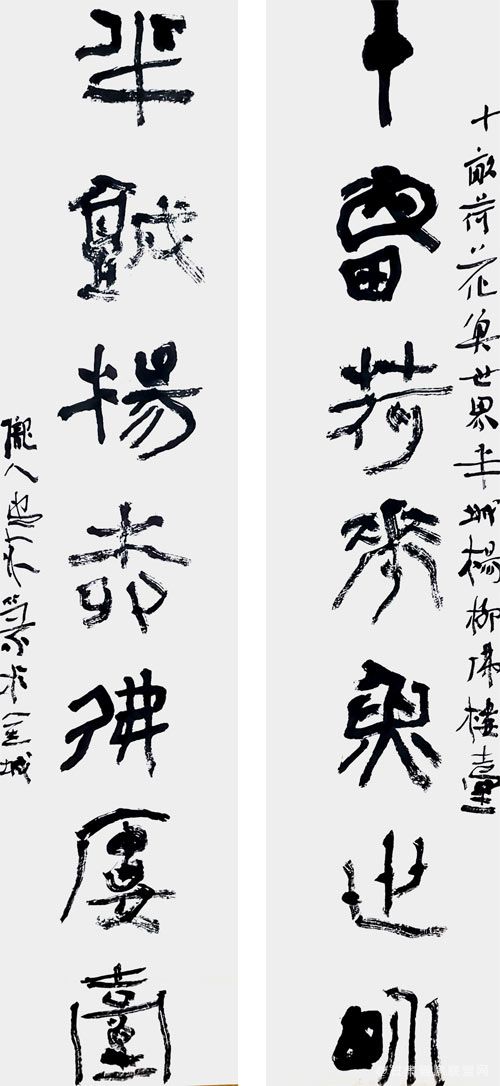 十畝荷花魚世界半城楊柳佛樓臺
十畮荷華魚世畍
半城楊柳彿廔臺
隴人也夫篆於金城